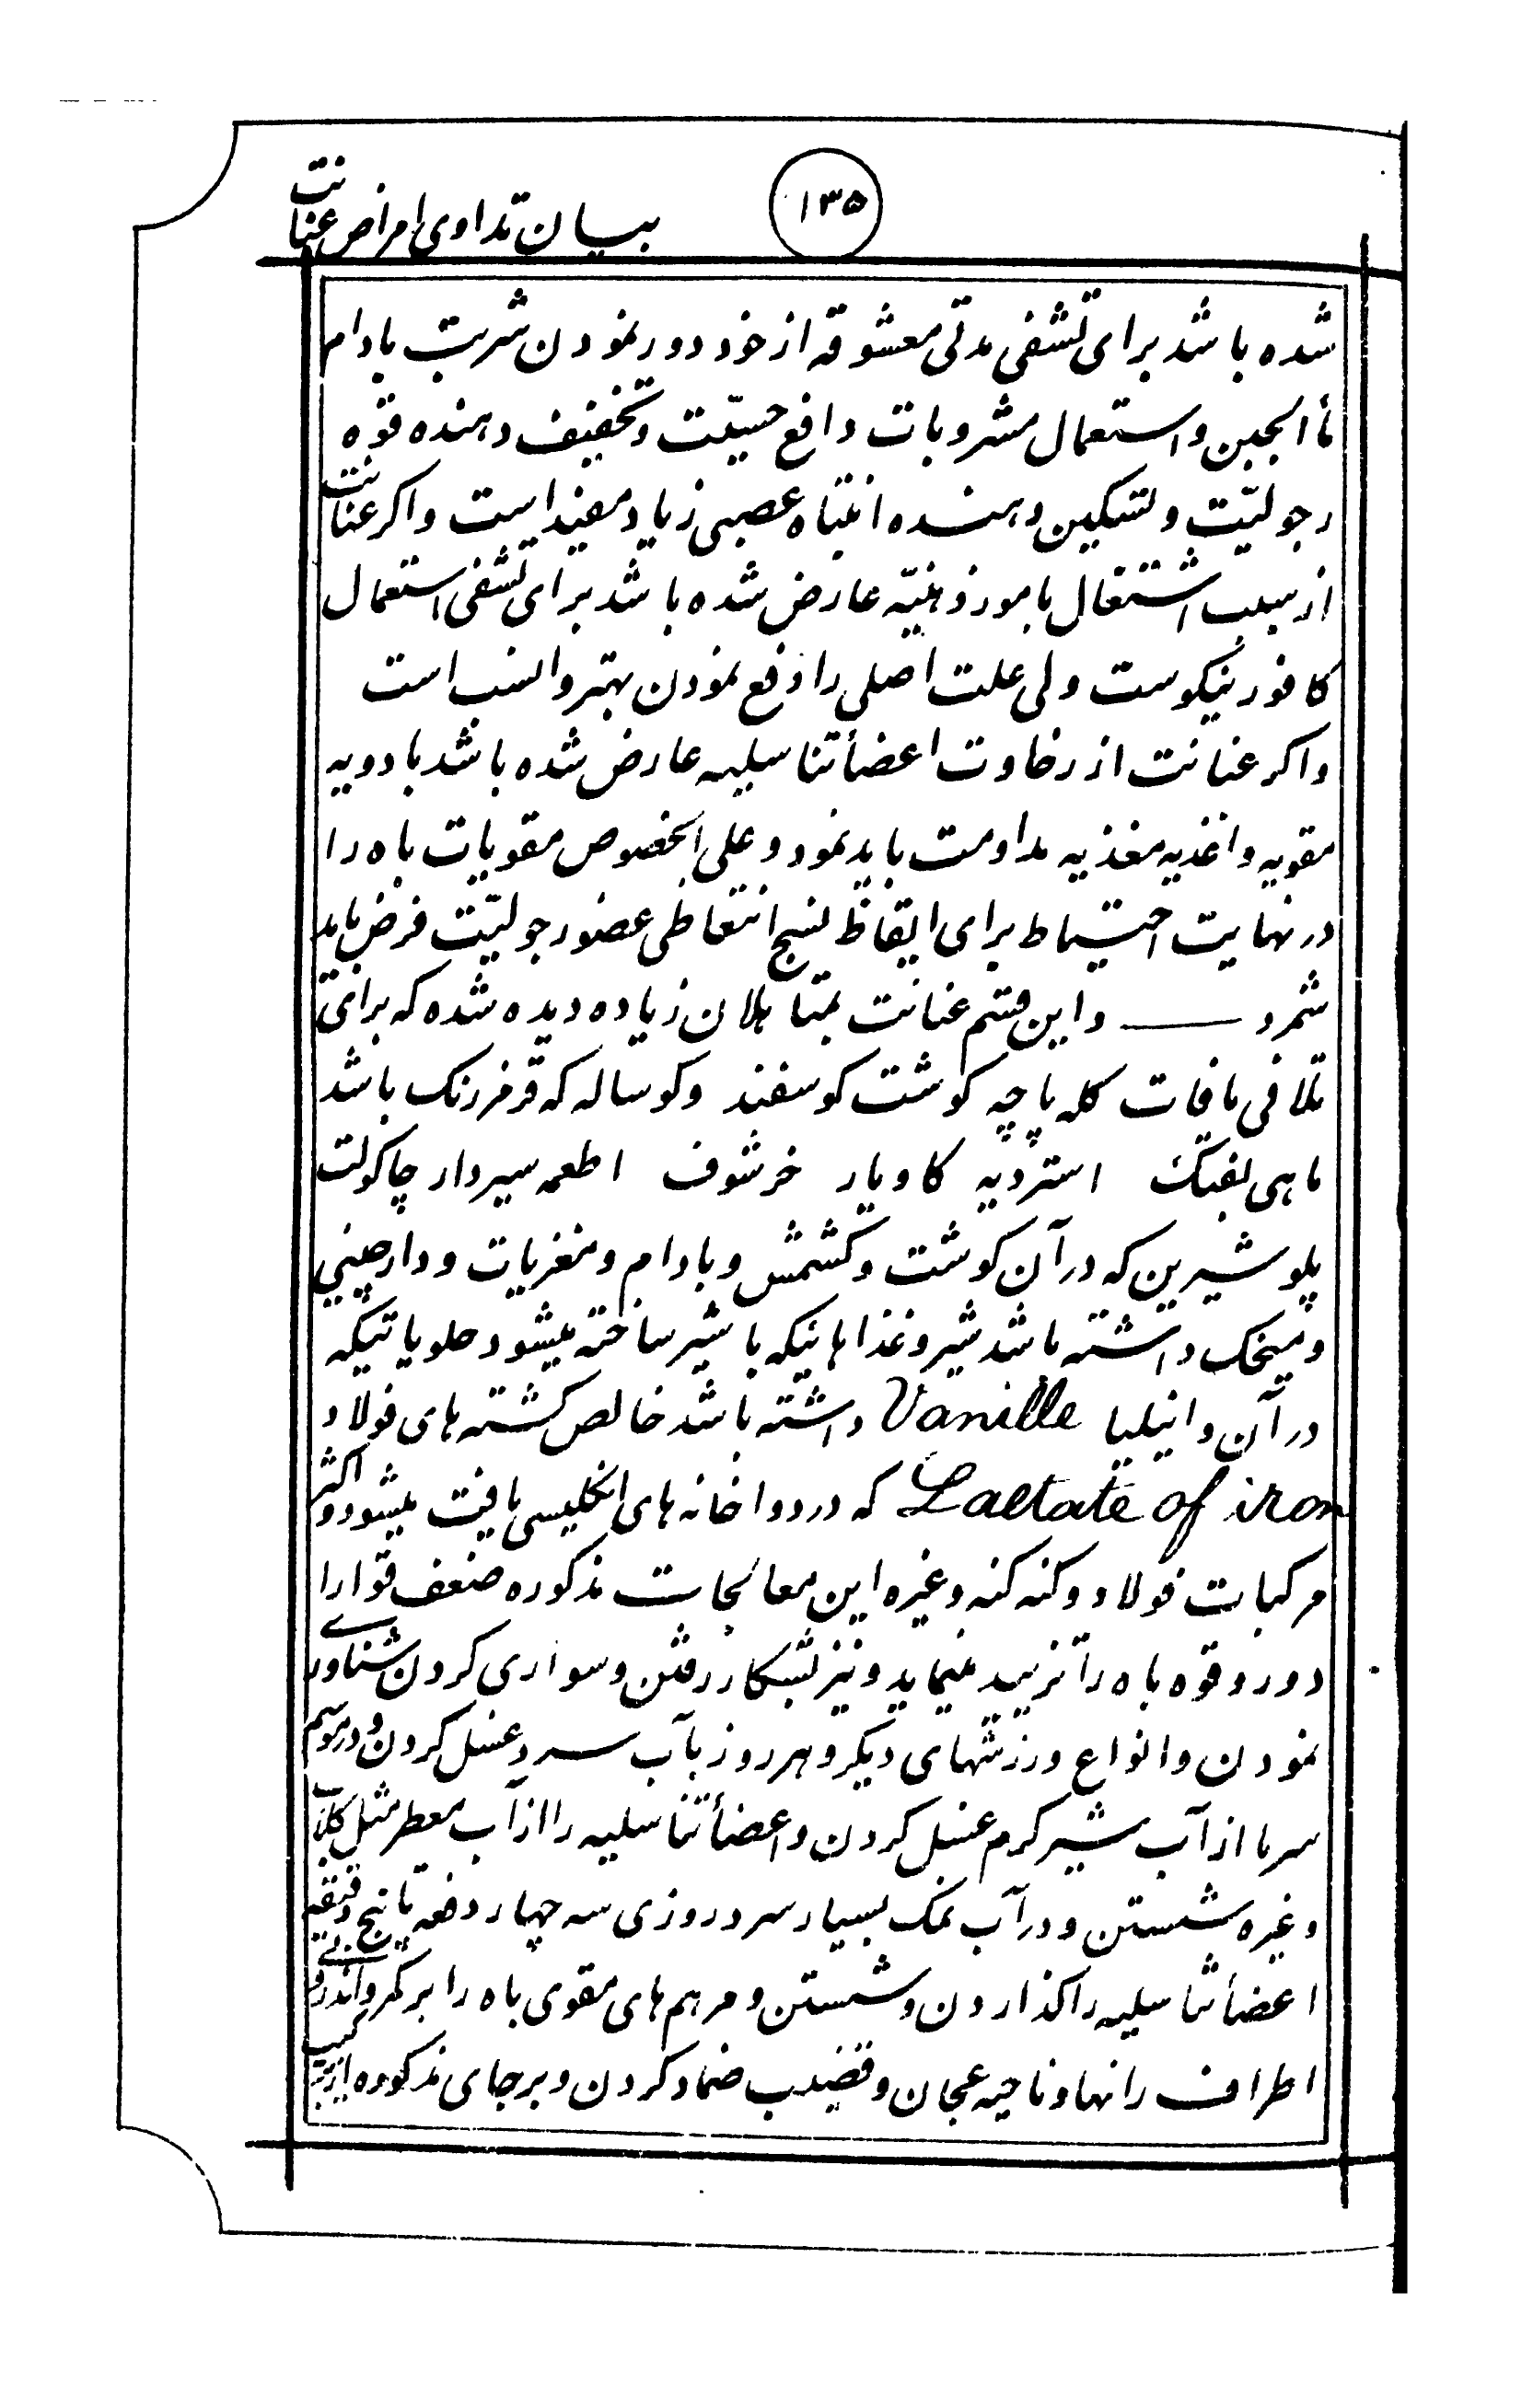 ۱۳۵
بیان تداوی امراض عنانت
شده باشد برای تشفی مدتی معشوقه از خود دور نمودن شربت بادام
مأ الجبن و استعمال مشروبات دافع حسیّت و تخفیف دهنده قوه
رجولیّت و تسکین دهنده انتباه عصبی زیاد مفید است واکر عنانت
از سبب اشتغال بامور ذهنیّه عارض شده باشد برای تشفی استعمال
کافور نیکوست ولی علت اصلی را دفع نمودن بهتر و انسب است
واکر عنانت از رخاوت اعضأ تناسلیه عارض شده باشد بادویه
مقویه و اغذیه مغذیه مداومت باید نمود و علی الخصوص مقویات باه را
در نهایت احتیاط برای ایقاظ نسج انتعاظی عضو رجولیّت فرض باید
شمرد —— و این قسم عنانت بمتاهلان زیاده دیده شده که برای
تلافی مافات کله پاچه کوشت کوسفند وکوساله که قرمز رنک باشد
ماهی استردیه کاویار خرشوف اطعمه سیردار چاکولت
پلو شیرین که در آن کوشت و کشمش و بادام و مغزیات و دارچینی
و میخک داشته باشد شیر و غذاهائیکه با شیر ساخته میشود حلویاتیکه
در آن وانیلیا Vanille داشته باشد خالص کشته های فولاد
Lactate of iron که در دواخانه های انکلیسی یافت میشود و اکثر
مرکبات فولاد و کنه کنه و غیره این معالجات مذکوره ضعف قوا را
دور و قوه باه را تزیید مینماید و نیز بشکار رفتن و سواری کردن شناوری
نمودن و انواع ورزشهای دیکر و هر روز بآب سرد غسل کردن و در موسم
سرما از آب شیر کرم غسل کردن و اعضأ تناسلیه را از آب معطر مثل کلاب
وغیره شستن و در آب نمک بسیار سرد روزی سه چهار دفعه تا پنج دقیقه
اعضأ تناسلیه را کذاردن و شستن و مرهم های مقوی باه را بر کمر و
اطراف رانها و ناحیه عجان و قضیب ضماد کردن و بر جای مذکوره